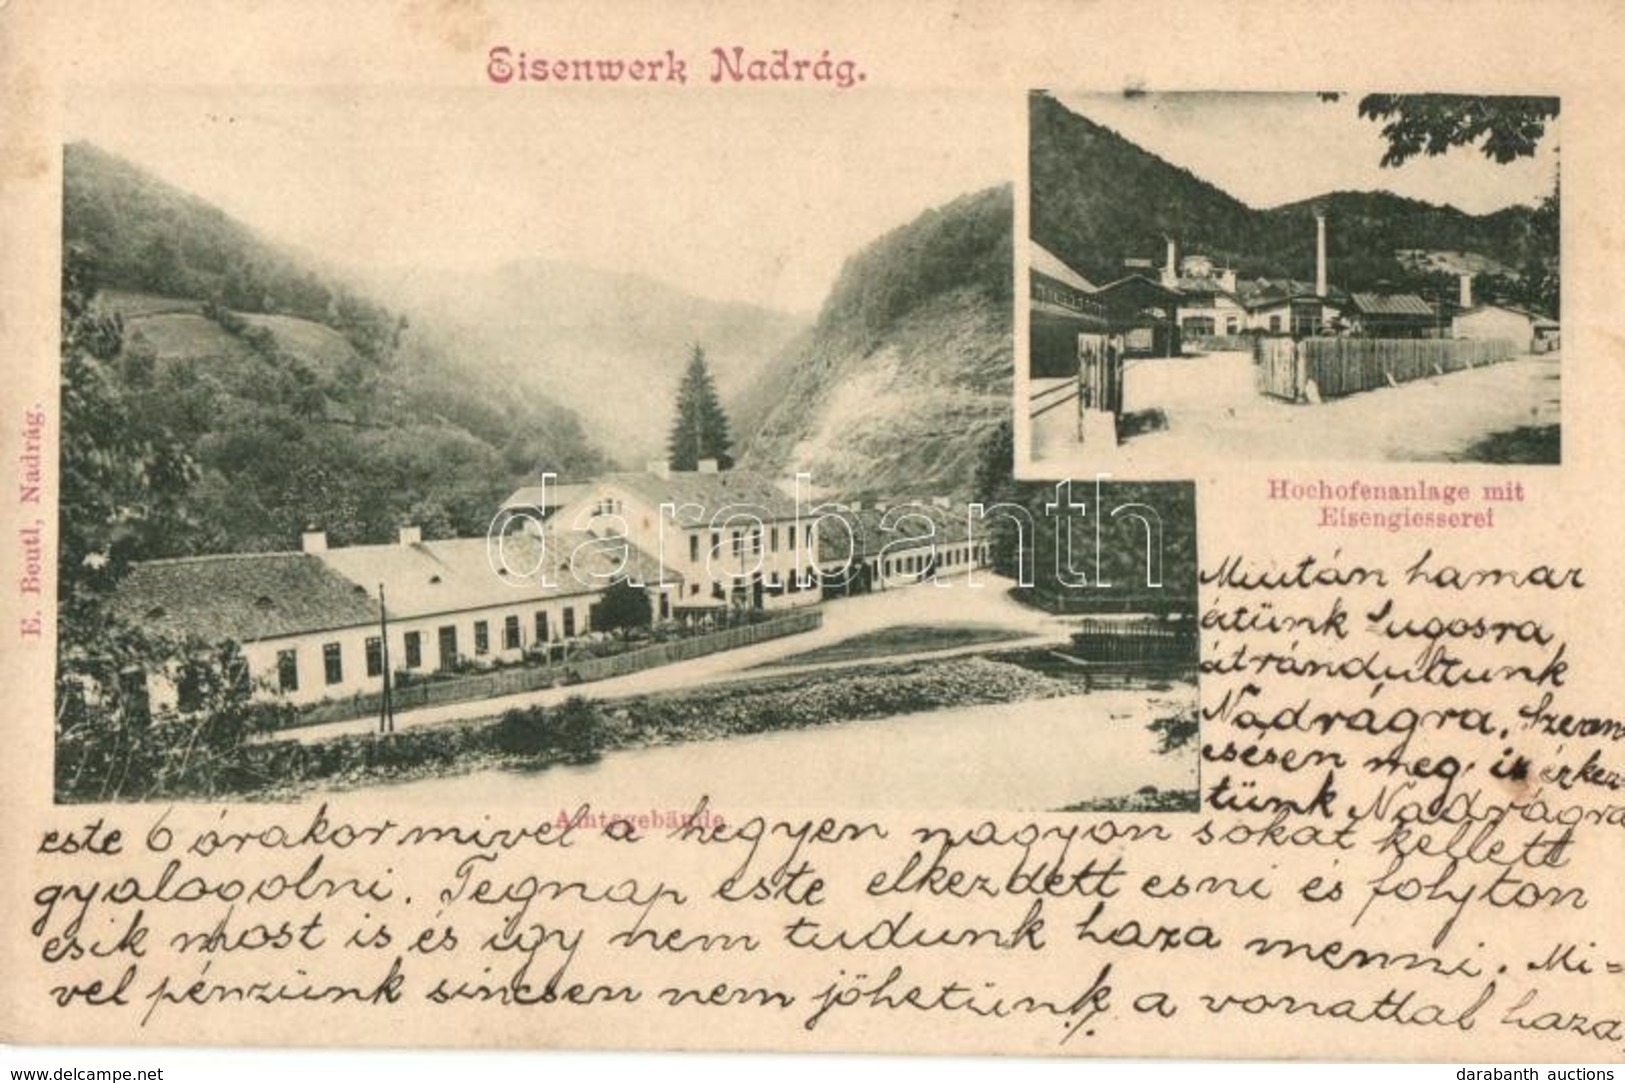 Eisenwerk Nadrág.
E. Beutl, Nadrág.
Hochofenanlage mit
Eisengiesserei
Amtsgebäude.
darabanth
Miután hamar
értünk Lugosra,
átrándultunk
Nadrágra. Szeren
csésen meg is érkez
tünk Nadrágra
este 6 órakor mivel a hegyen nagyon sokat kellett
gyalogolni. Tegnap este elkezdett esni és folyton
esik most is és igy nem tudunk haza menni. Mi=
vel pénzünk sincsen nem jöhetünk a vonattal haza,
www.delcampe.net
darabanth auctions